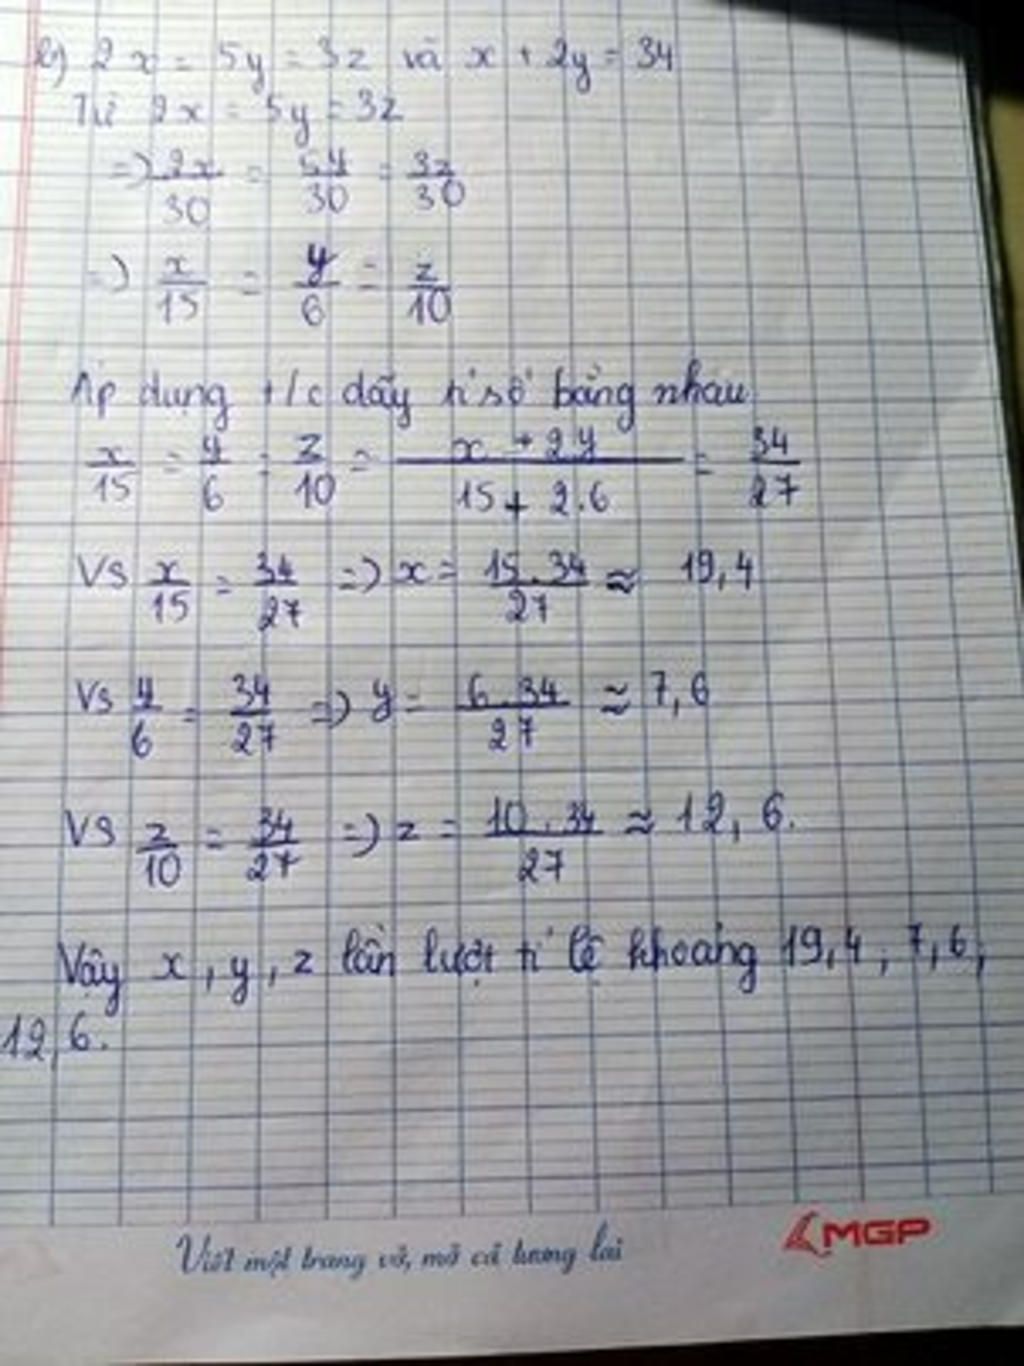 b) 2x = 5y = 3z và x + 2y = 34
Từ 2x = 5y = 3z
=) 2x/30 = 5y/30 = 3z/30
=) x/15 = y/6 = z/10
Áp dụng t/c dãy tỉ số bằng nhau
x/15 = y/6 = z/10 = x + 2y/15 + 2.6 = 34/27
Vs x/15 = 34/27 =) x = 15.34/27 ≈ 19,4
Vs y/6 = 34/27 =) y = 6.34/27 ≈ 7,6
Vs z/10 = 34/27 =) z = 10.34/27 ≈ 12,6.
Vậy x, y, z lần lượt tỉ lệ khoảng 19,4; 7,6;
12,6.
Viết một trang vở, mở cả tương lai
MGP